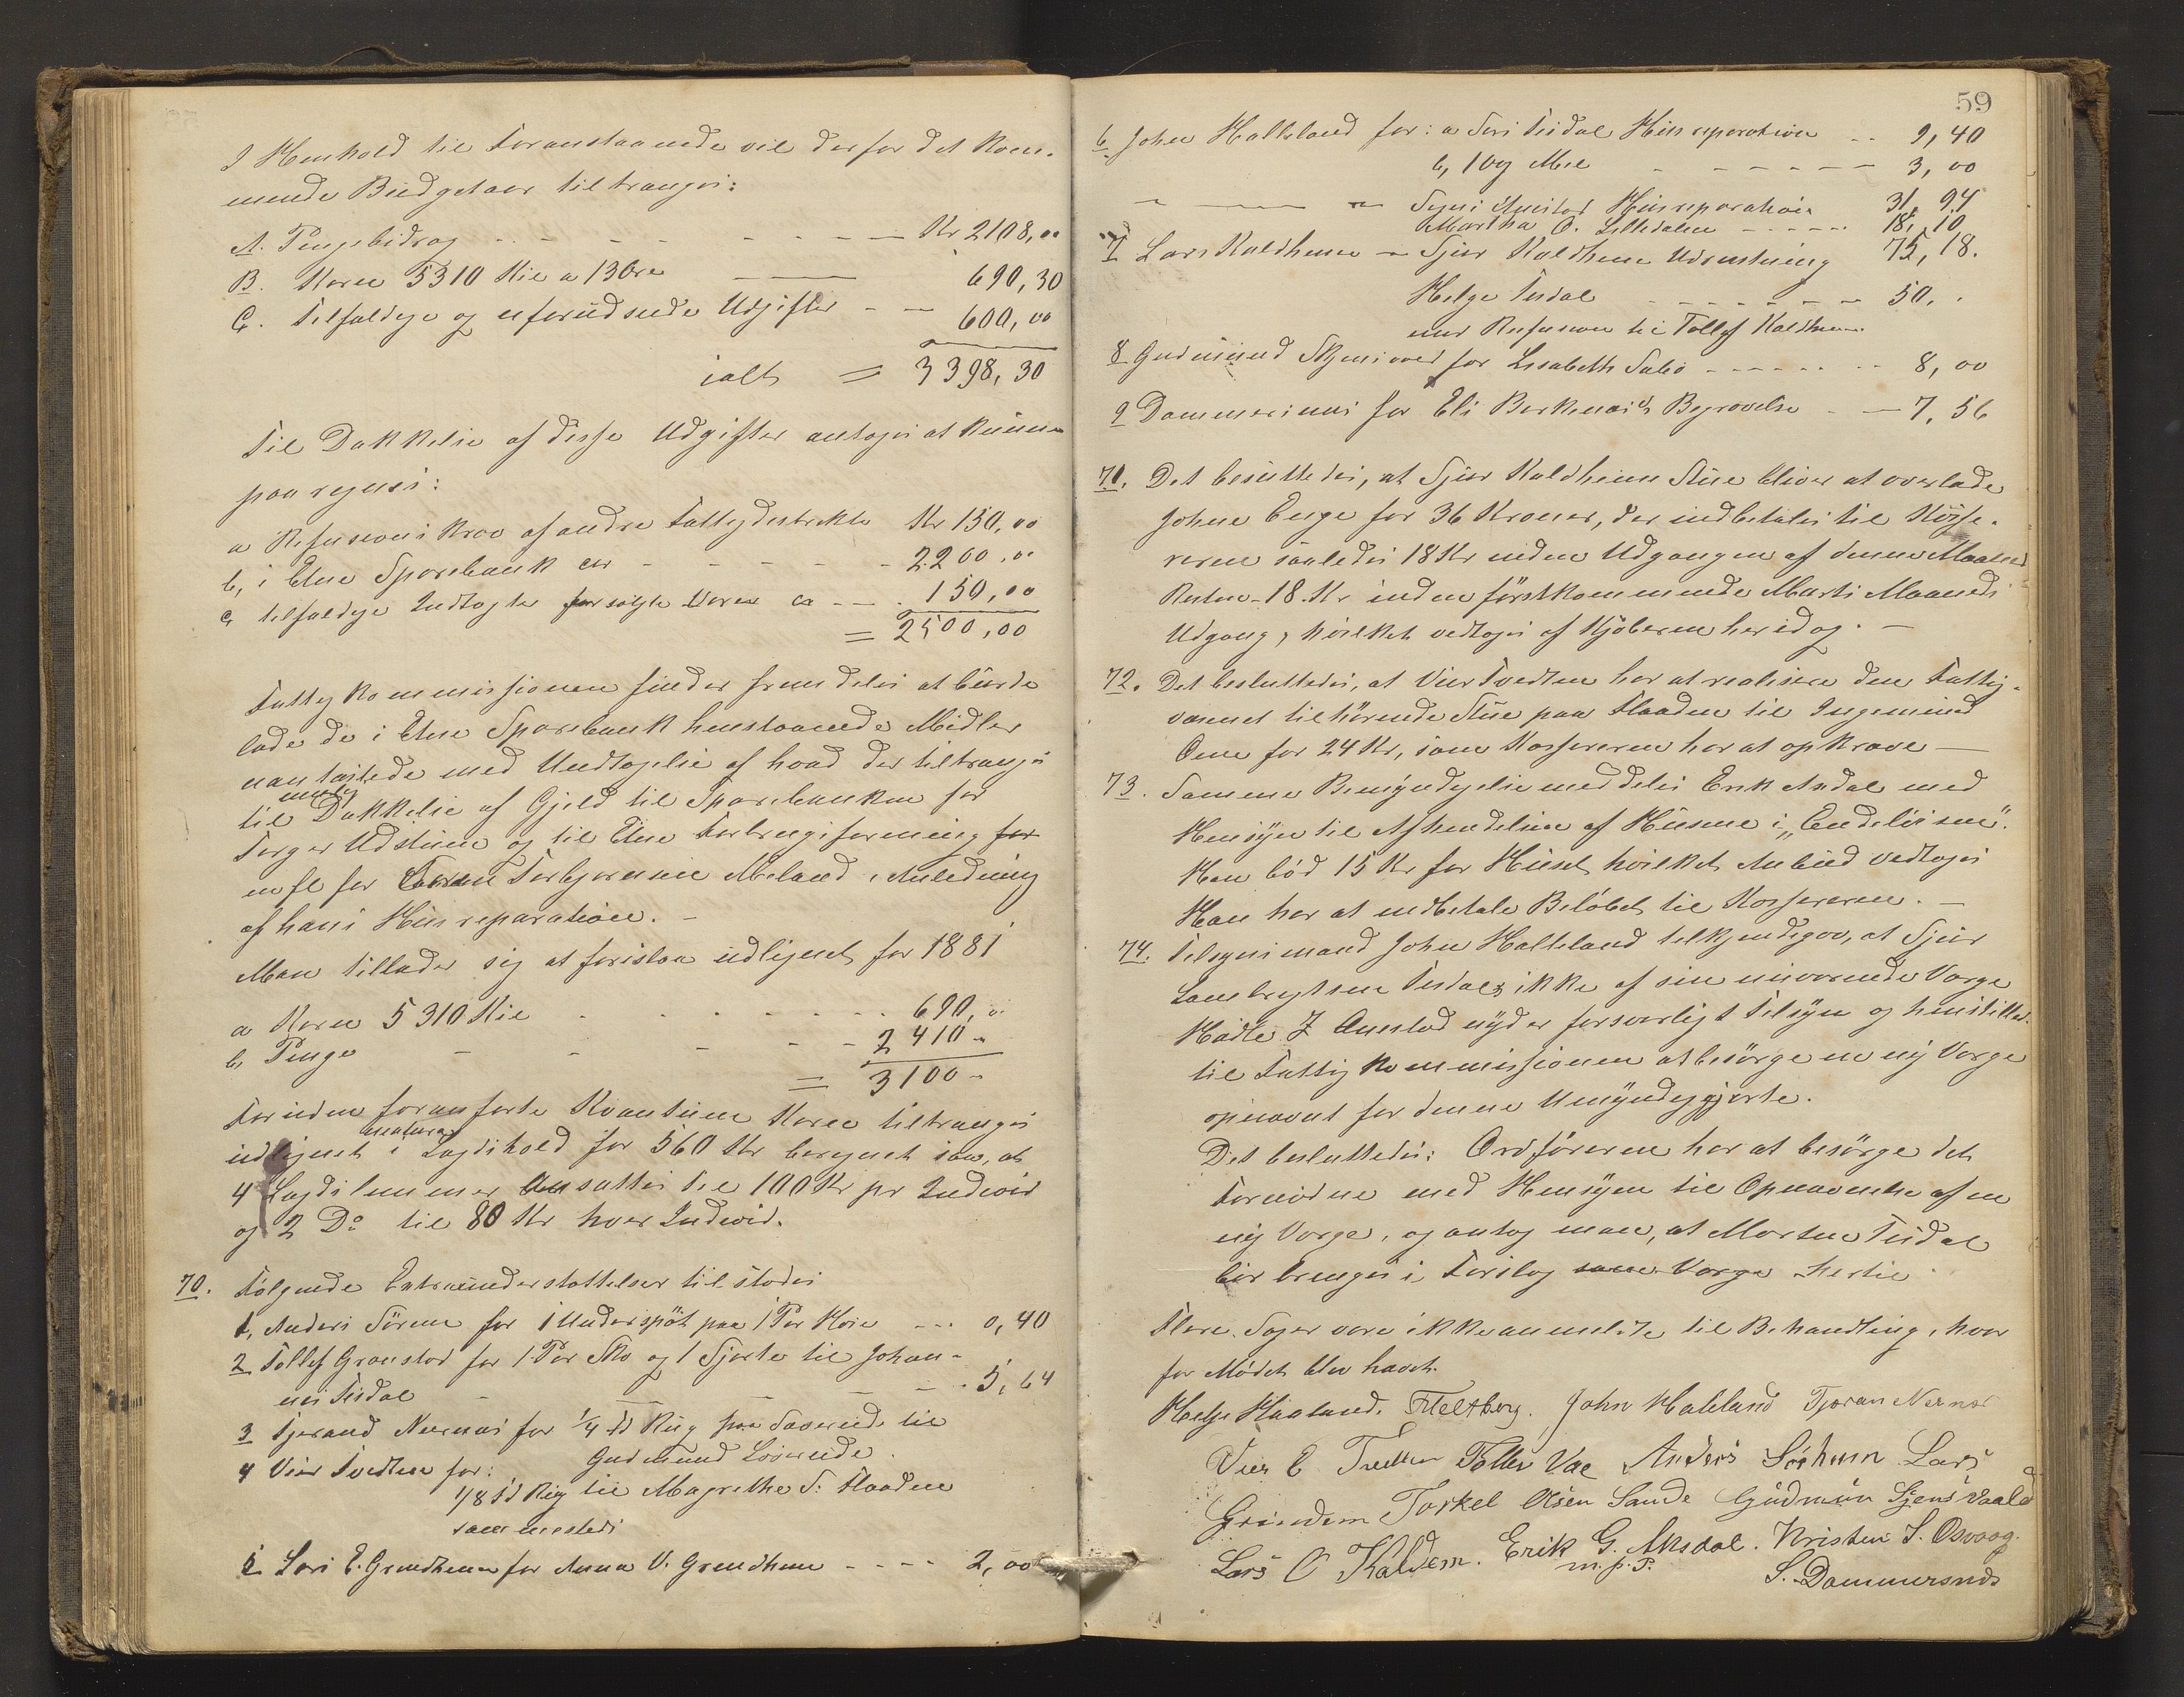 I Henhold til Foranstaaende vil der for det kom-
mende Budgetaar tiltrænges:
A. Pengebidrag - - - - - - Kr 2108,00
B. Korn 5310 Kil a 13 Øre - 690,30
C. Tilfældige og uforudseede Udgifter - - 600,00
ialt = 3398,30
Til Dækkelse af disse Udgifter antages at kunne
paaregnes:
a Refusionskrav af andre Fattigdistrikter Kr 150,00
b, i Etne Sparebank ca - - - - - 2200,00
c tilfældige Indtægter for solgte Varer ca - - 150,00
= 2500,00
Fattigkommissionen finder fremdeles at burde
lade de i Etne Sparebank henstaaende Midler
uantastede med Undtagelse af hvad der tiltrænges
til mulig Dækkelse af Gjeld til Sparebanken for
Torger Udstuen og til Etne Forbrugsforening for
en fl for Torbjørnsen Meland i Anledning
af hans Husreparation. -
Man tillader sig at foreslaa udlignet for 1881
a Korn 5310 Kil - - - - - - 690,00
b, Penge - - - - - 2410 -
= 3100 -
Foruden foranførte Kvantum Korn tiltrænges
udlignet i Lægdshold in natura for 560 Kr beregnet saa, at
4 Lægdslemmer ansættes til 100 Kr pr Individ
og 2 Do til 80 Kr hver Individ.
70. Følgende Extraunderstøttelser tilstodes
1, Anders Sørheim for 1 Underspøt paa 1 Par Skoe - - - 0,40
2 Tollef Grønstad for 1 Par Sko og 1 Skjorte til Johan-
nes Tesdal - - - - 5,64
3 Tjerand Nernæs for 1/4 Td Rug til
Gudmund
4 Vier Tvedten for:
1/8 Td Rug til Magrethe S. Flaaden
sammesteds
5 Lars E. Grindheim for Anna V. Grindheim - - - - 2,00
59
6 John Halleland for: a Siri Tesdal Husreparation - - 9,40
b, 1 Vog Mel - - - - - - 3,00
- - - Husreparation 31,94
Martha O. Lilledalen - - - - - 18,10
7 Lars Kaldheim - Sjur Kaldheim Udrustning 75,18.
Helge Tesdal - - - - - - - 50, .
mod Refusion til Tollef Kaldheim
8 Gudmund Skjensvold for Lisabeth Sæbø - - - - - - - 8,00
9 Dommersnes for Eli Berkenæs's Begravelse - - - 7,56
71. Det besluttedes, at Sjur Kaldheim Stue bliver at overlade
Johan Enge for 36 Kroner, der indbetales til Kasse-
reren saaledes 18 Kr inden Udgangen af denne Maaned
Resten 18 Kr inden førstkommende Marts Maaneds
Udgang, hvilket vedtages af Kjøberen her idag. -
72. Det besluttedes, at Vier Tvedten har at realisere den Fattig-
væsenet tilhørende Stue paa Flaaden til Ingemund
Ome for 24 Kr, som Kassereren har at opkræve -
73. Samme Bemyndigelse meddeles Erik Axdal med
Hensyn til Afhændelsen af Husene i „Endeløisen".
Han bød 15 Kr for Huset hvilket Anbud vedtages
Han har at indbetale Beløbet til Kassereren. -
74. Tilsynsmand John Halleland tilkjendegav, at Sjur
Lambregtsen Tesdal ikke af sin nuværende Værge
Hadle J Amstad nyder forsvarligt Tilsyn og henstiller
til Fattigkommissionen at besørge en ny Værge
opnævnt for denne Umyndiggjorte.
Det besluttedes: Ordføreren har at besørge det
Fornødne med Hensyn til Opnævnelse af en
ny Værge, og antog man, at Morten Tesdal
bør bringes i Forslag som Værge hertil
Flere Sager vare ikke anmeldte til Behandling, hvor
for Mødet blev hævet.
Helge Haaland. F Feltberg. John Haleland Tjøran Nernæs
Vier E Tvedten Tollev Vae Anders Sørheim Lars
Grindem Torkel Olsen Sande Gudmun Sjensvaald
Lars O Kaldem. Erik G. Aksdal. Kristen S. Osvaag.
m. p. P. S. Dommersnes